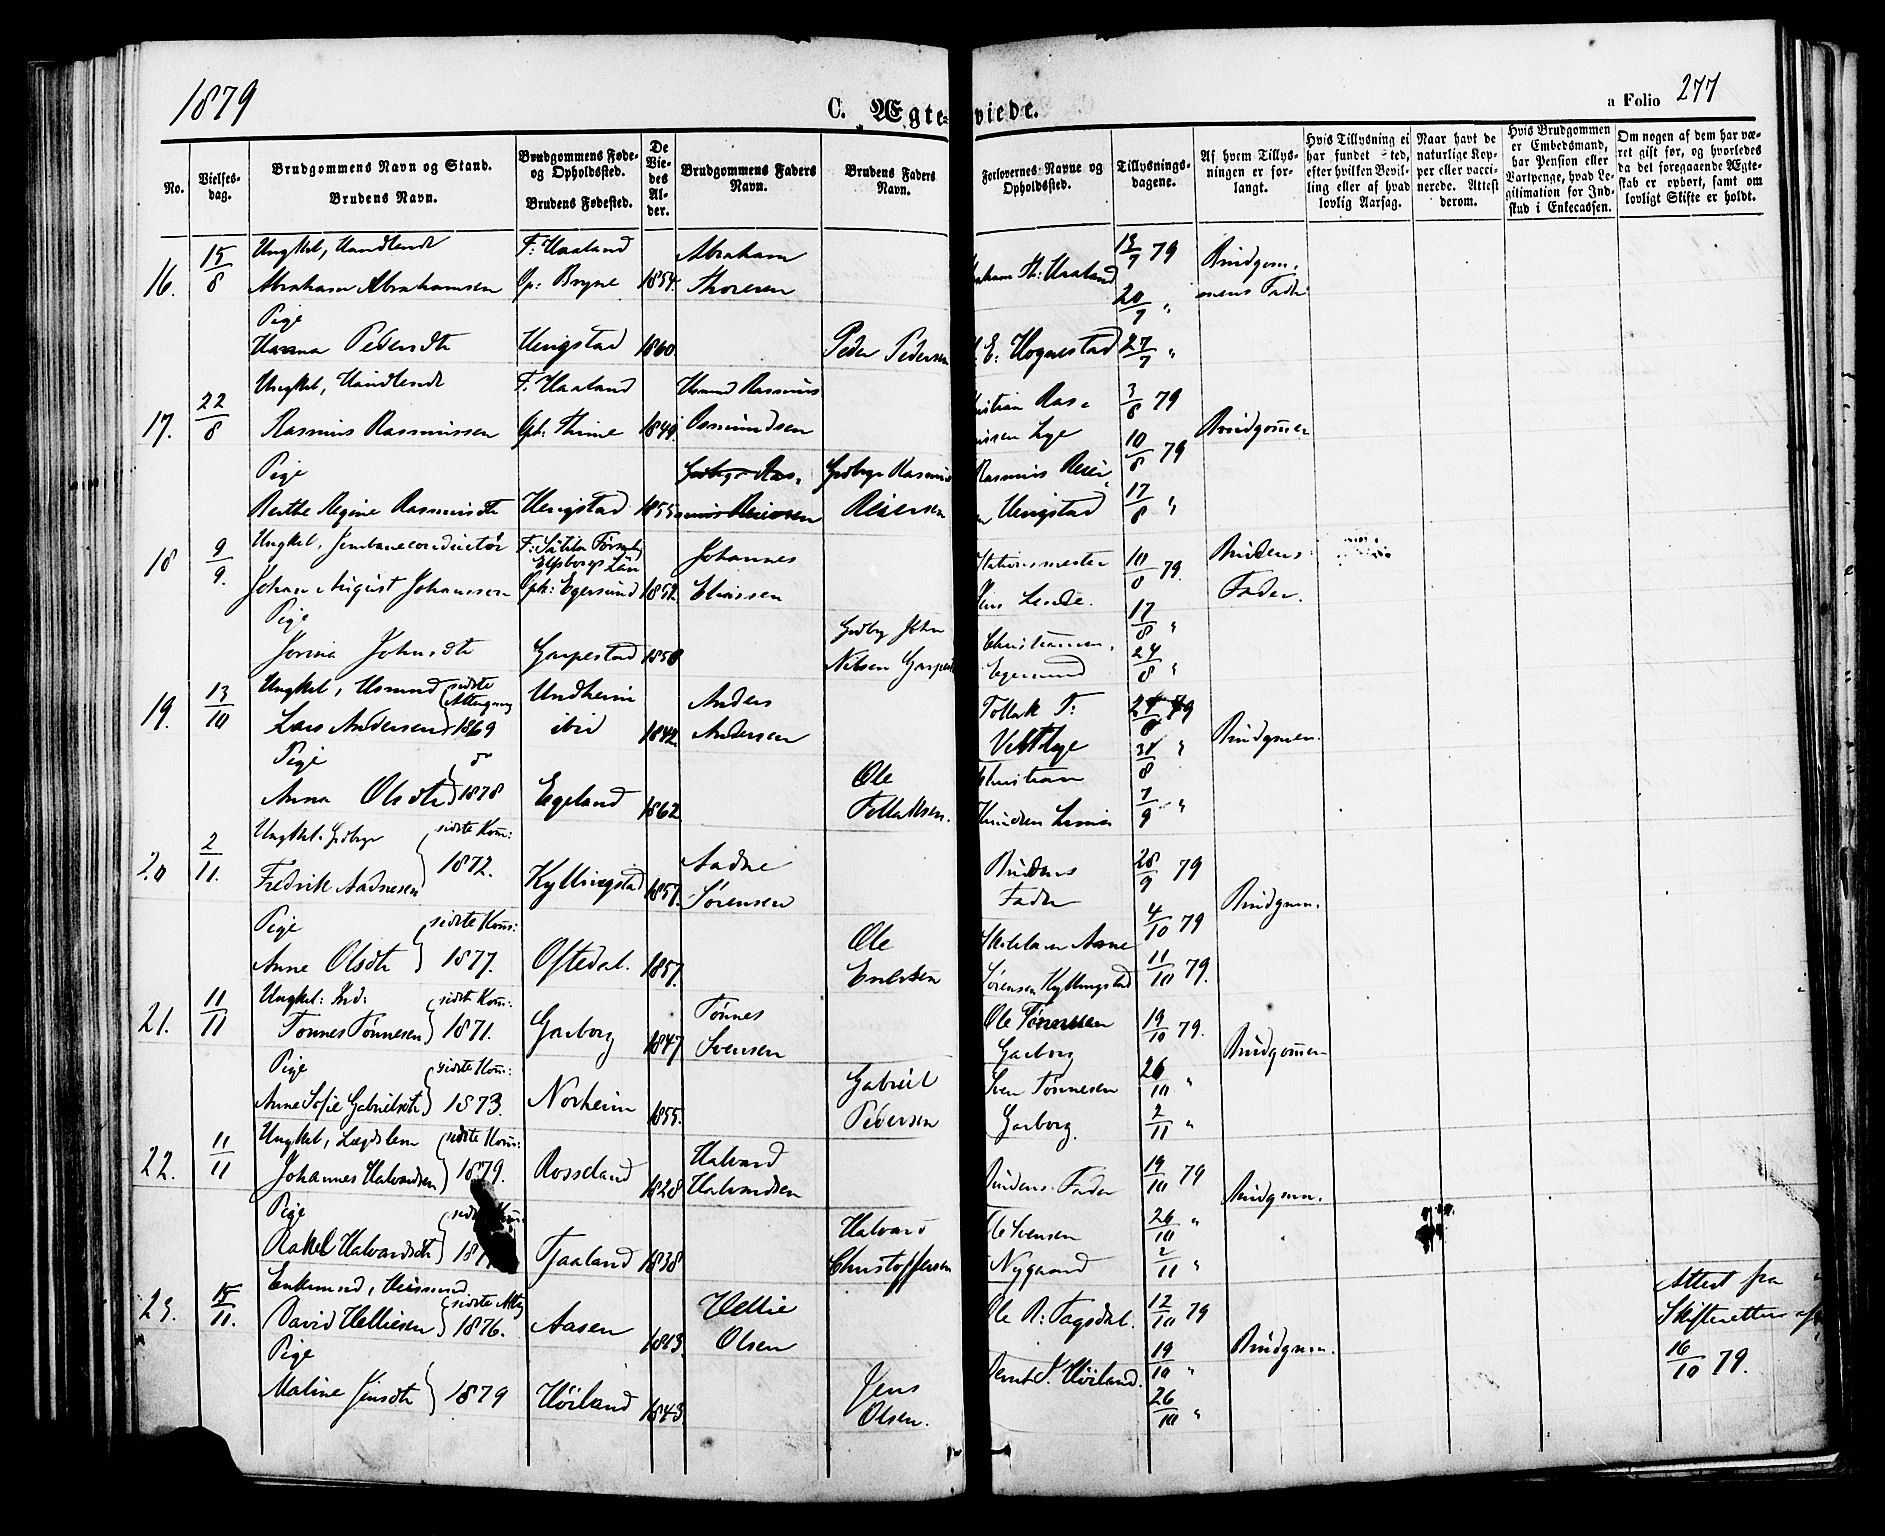 1879
C. Ægteviede.
a Folio 277
No.
Vielsesdag.
Brudgommens Navn og Stand.
Brudens Navn.
Brudgommens Føde- og Opholdssted.
Brudens Fødested.
De Viedes Alder.
Brudgommens Faders Navn.
Brudens Faders Navn.
Forlovernes Navne og Opholdssted.
Tillysningsdagene.
Af hvem Tillysningen er forlangt.
Hvis Tillysning ei har fundet Sted, efter hvilken Bevilling eller af hvad lovlig Aarsag.
Naar havt de naturlige Kopper eller vaccinerede. Attest derom.
Hvis Brudgommen er Embedsmand, har Pension eller Vartpenge, hvad Legitimation for Indskud i Enkecassen.
Om nogen af dem har været gift før, og hvorledes da det foregaaende Ægteskab er ophørt, samt om lovligt Skifte er holdt.
16. 15/8 Ungkel, Handlende F: Haaland Abraham 13/7 79 Brudgom-
Abraham Abrahamsen Op: Bryne 1854. Thoresen Th: Haaland 20/7 " mens Fader
Pige
Hanna Pedersdtr Hengstad 1860. Peder Pedersen E: Hognestad 27/7 "
17. 22/8 Ungkel, Handlende F. Haaland Rasmus Christian Ras- 3/8 79
Rasmus Rasmussen Oph: Thime 1849. Osmundsen Lye 10/8 79 Brudgommen
Pige Gdbgr Rasmus Rasmus Reier-
Berthe Regine Rasmusdtr Hengstad 1855 Reiersen Hengstad 17/8 "
18 9/9. Ungkel, Jernbaneconductør Elfsborgs Län Johannes Stationsmester 10/8 79. Brudens
Johan August Johanssen Oph: Egersund 1852. Eliassen Lende. Fader.
Pige Gdbg John 17/8 "
Jorina Johnsdtr Garpestad 1858 Nilsen Garpest Christiansen, Egersund 24/8 "
19. 13/10 Ungkel, Husmand sidste Altergang Undheim Anders Tollak T: 24/8 79
Lars Andersen 1869 ibid 1842. Andersen Lye 31/8 " Brudgmen.
Pige do Ole Christian
Anna Olsdtr 1878 Egeland 1862 Tollaksen. Knudsen 7/9 "
20 2/11. Ungkel. Gdbgr sidste Kom: Aadne Brudens 28/9 79
Fredrik Aadnesen 1872. Kyllingstad 1857. Sørensen Fader Brudgmen.
Pige sidste Kom: Ole Aane 4/10 79
Anne Olsdtr 1877. Oftedal. 1857. Eriksen Sørensen Kyllingstad 11/10 79.
21. 11/11 Ungkel: Ind: sidste Kom: Tønnes Ole Tønnesen 19/10 79.
Tønnes Tønnesen 1871. Garborg 1847 Svensen Garborg Brudgommen
Pige sidste Kom: Gabriel Sven Tønnesen 26/10 "
Anne Sofie Gabrielsdtr 1873. Norheim 1855. Pedersen Garborg. 2/11 "
22. 11/11 Ungkel, Lægdslem sidste Kom: Halvard 19/10 79
Johannes Halvardsen 1879. Rosseland 1828 Halvardsen Brudens Fader Brudgmen.
Pige sidste Kom: Halvard Ole Svensen 26/10 "
Rakel Halvardsdtr Tjaaland 1838 Christoffersen Nygaard 2/11 "
23. 15/11. Enkemand, Huusmand sidste Altg Hellie Ole R: Tagsdal. 12/10 79 Attest fra
David Helliesen 1876. Aasen 1813. Olsen Brudgmen. Skifteretten af
Pige Jens 19/10 " 16/10 79.
Maline Jensdtr 1879 Høiland 1843. Olsen. Bernt S. Høiland. 26/10 "